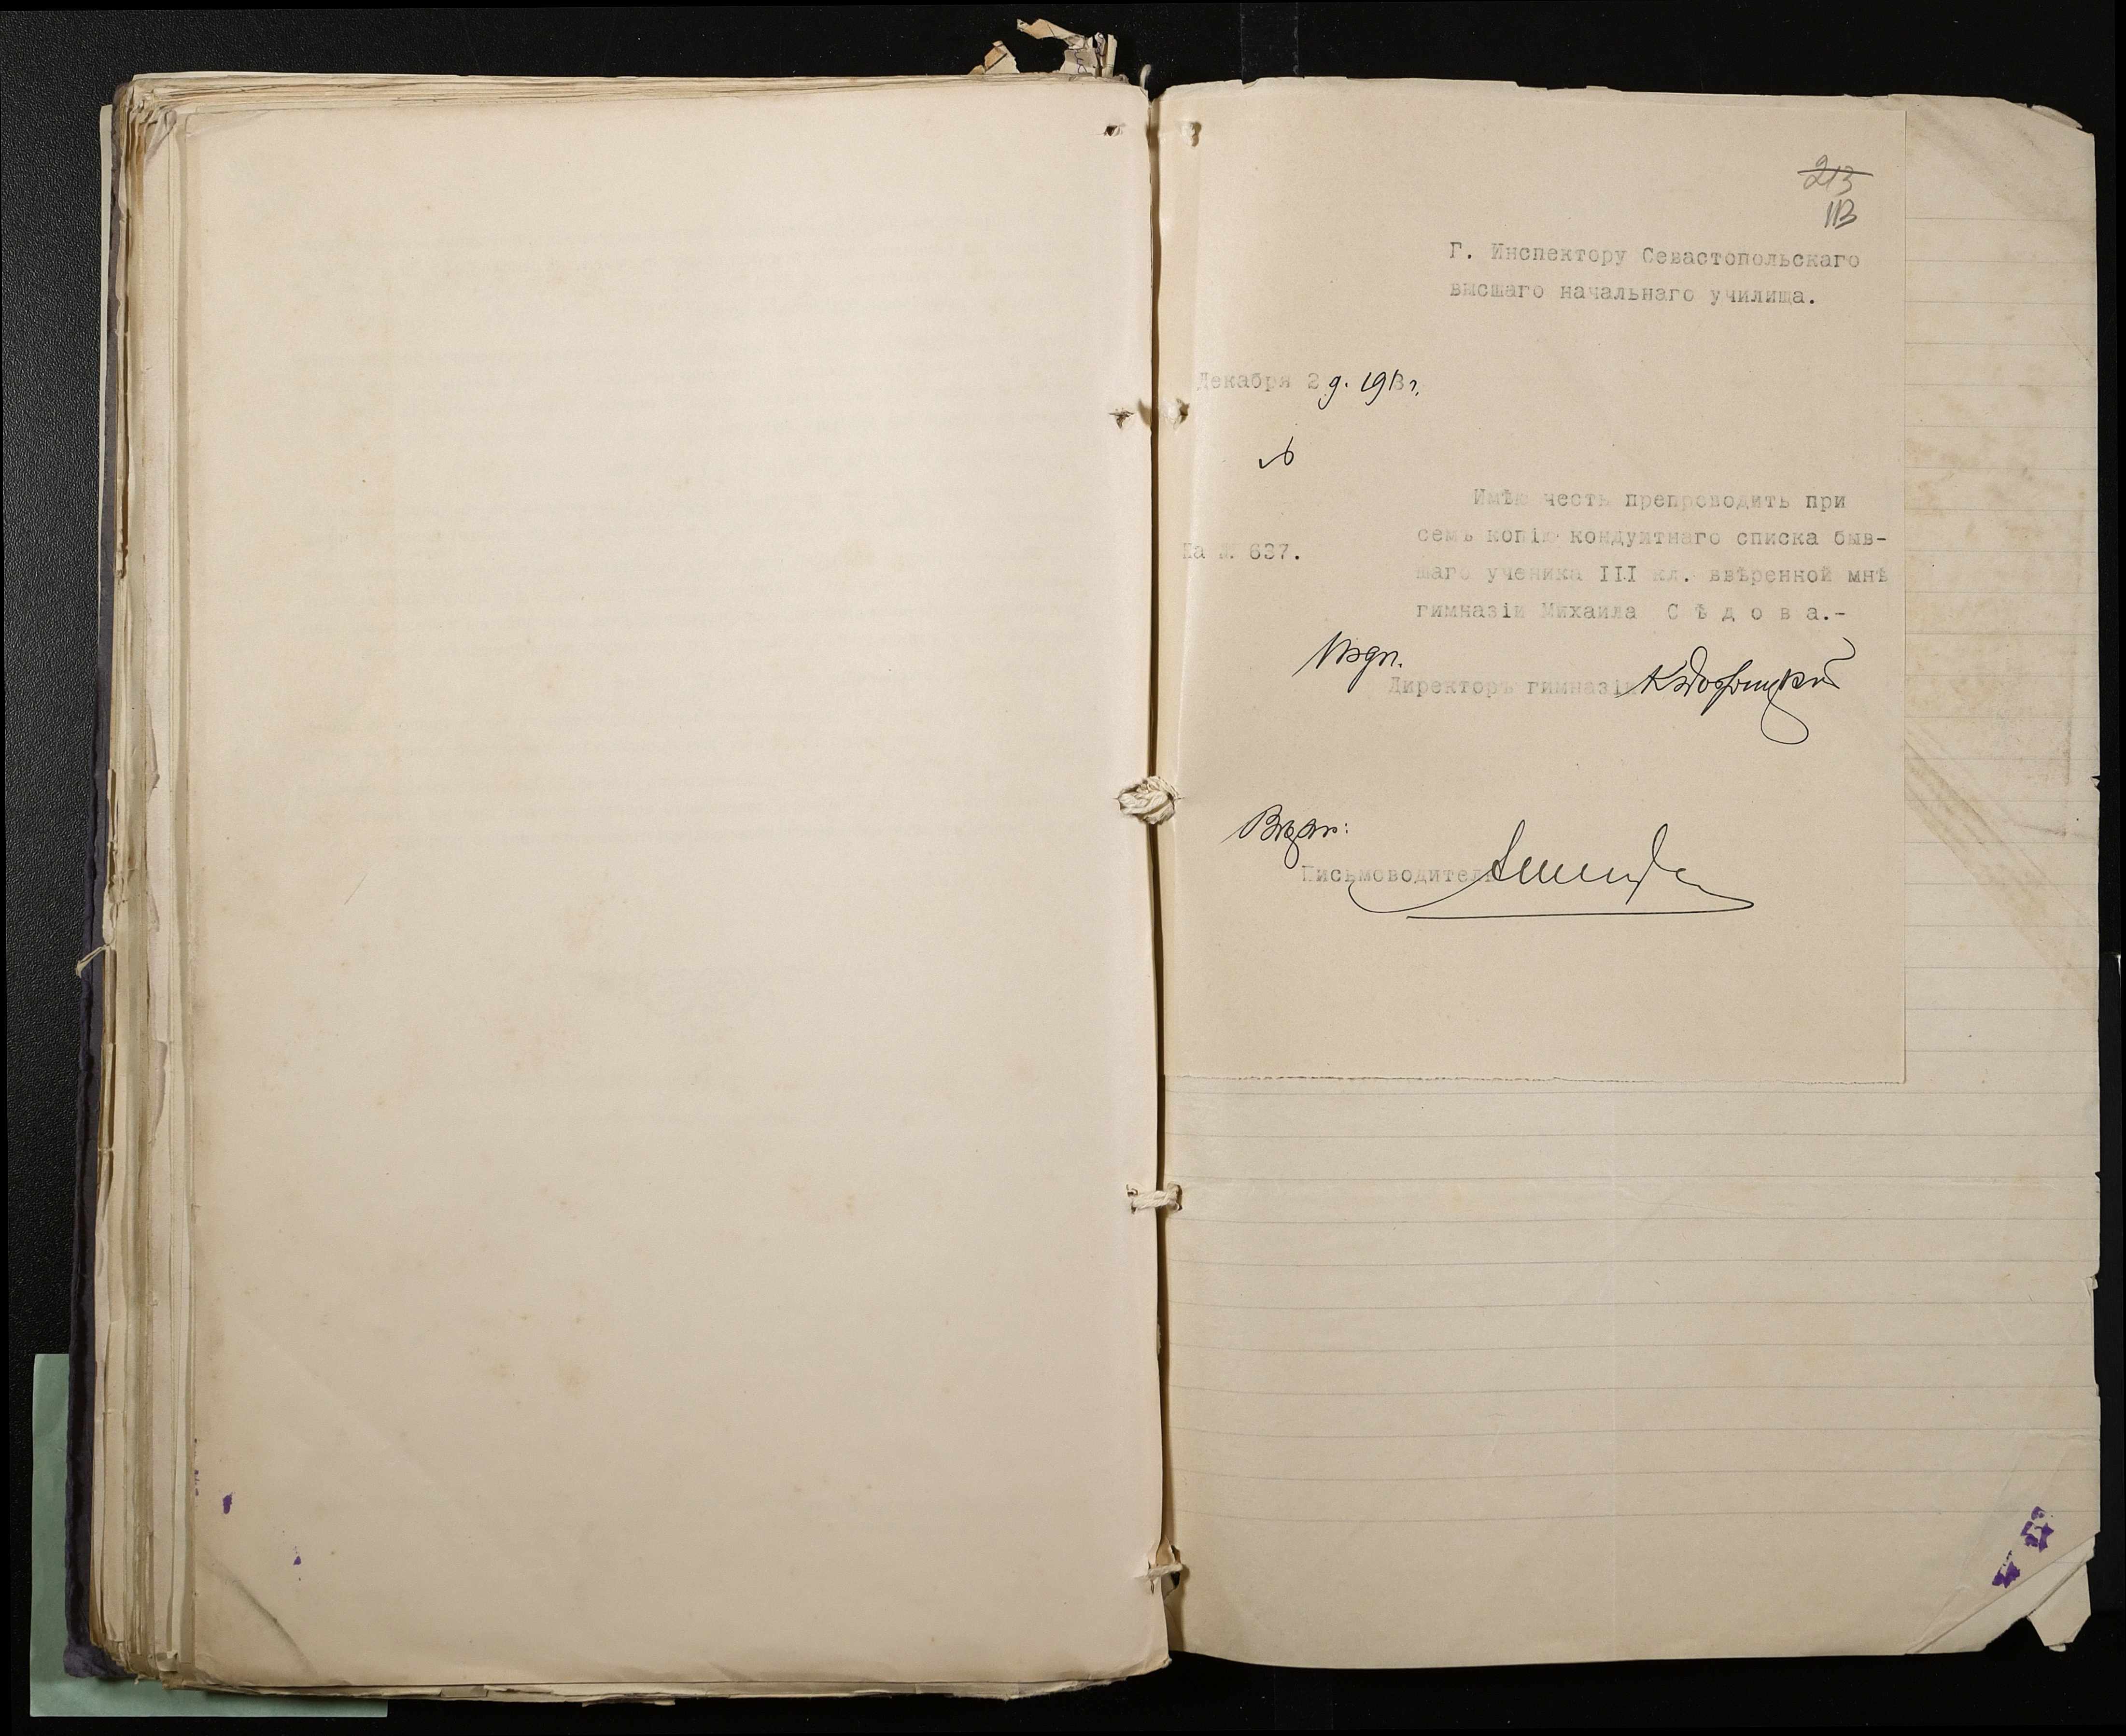 213
113
Г. Инспектору Севастопольскаго
высшаго начальнаго училища.
Декабря 2 д. 1913 г.
№
Имѣю честь препроводить при
семъ копію кондуитнаго списка быв-
На № 637.
шаго ученика III кл. ввѣренной мнѣ
гимназіи Михаила С ѣ д о в а.-
Директоръ гимназіи
Письмоводитель